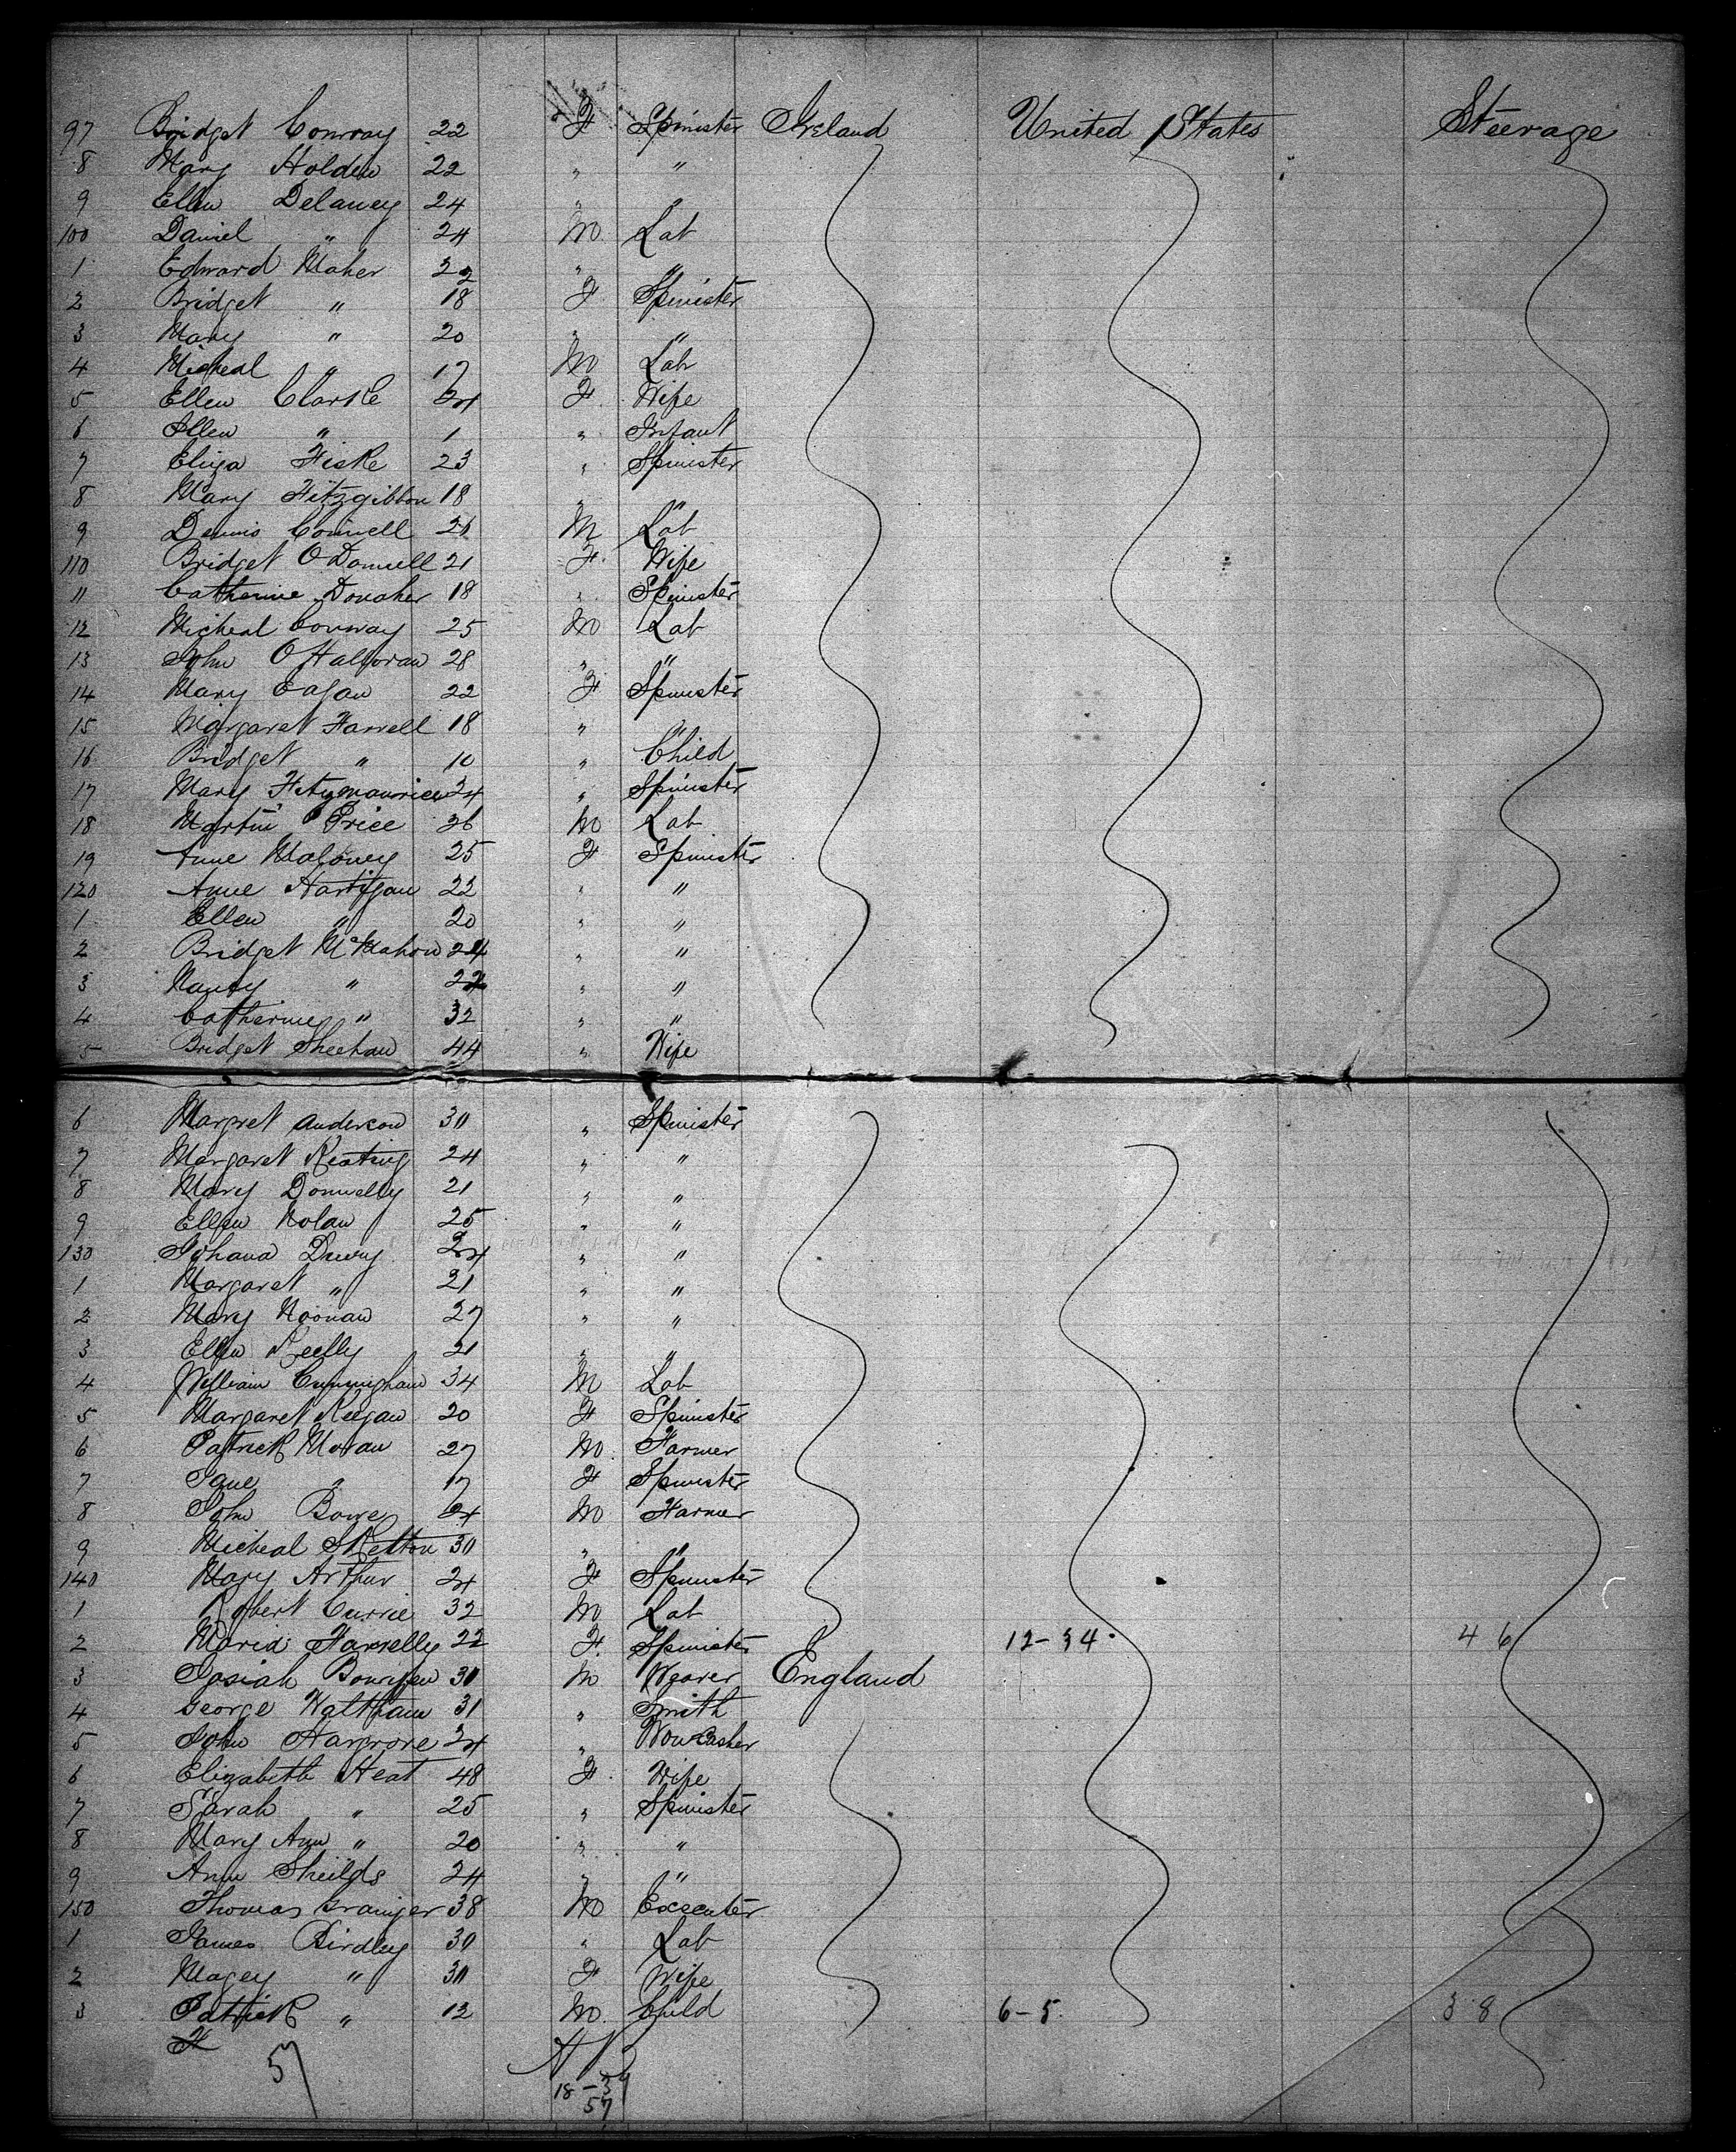 97 Bridget Conway 22 F Spinster Ireland United States Steerage
8 Mary Holden 22 " "
9 Ellen Delaney 24 " "
100 Daniel " 24 M Lab
1 Edward Maher 22 " "
2 Bridget " 18 F Spinster
3 Mary " 20 " "
4 Micheal " 17 M Lab
5 Ellen Clarke 24 F Wife
6 Ellen " 1 " Infant
7 Eliza Fiske 23 " Spinster
8 Mary Fitzgibbon 18 " "
9 Dennis Connell 21 M Lab
110 Bridget O Donnell 21 F Wife
11 Catherine Donaher 18 " Spinster
12 Micheal Conway 25 M Lab
13 John O Halloran 28 " "
14 Mary Eagan 22 F Spinster
15 Margaret Farrell 18 " "
16 Bridget " 10 " Child
17 Mary Fitzmaurice 24 " Spinster
18 Martin Price 26 M Lab
19 Anne Maloney 25 F Spinster
120 Anne Hartigan 22 " "
1 Ellen " 20 " "
2 Bridget McMahon 24 " "
3 " " "
4 Catherine " 32 " "
5 Bridget Sheehan 44 " Wife
6 Margret Anderson 30 " Spinster
7 Margaret Keating 24 " "
8 Mary Donnelly 21 " "
9 Ellen Nolan 25 " "
130 Johana 24 " "
1 Margaret " 21 " "
2 Mary Noonan 27 " "
3 Ellen Reelly 21 " "
4 William Cunningham 34 M Lab
5 Margaret Keegan 20 F Spinster
6 Patrick Moran 27 M Farmer
7 Jane " 17 F Spinster
8 John Bowe 24 M Farmer
9 Micheal Skelton 30 " "
140 Mary Arthur 24 F Spinster
1 Robert Currie 32 M Lab
2 Maria Farrelly 22 F Spinster 12-34 46
3 Josiah 30 M Weaver England
4 George Waltham 31 " Smith
5 John Hargrove 24 "
6 Elizabeth Heat 48 F Wife
7 Sarah " 25 " Spinster
8 Mary Ann " 20 " "
9 Ann Sheilds 24 " "
150 Thomas Grainger 38 M
1 James Birdley 30 " Lab
2 " 30 F Wife
3 Patrick " 12 M Child 6-5 38
57
18-39
57